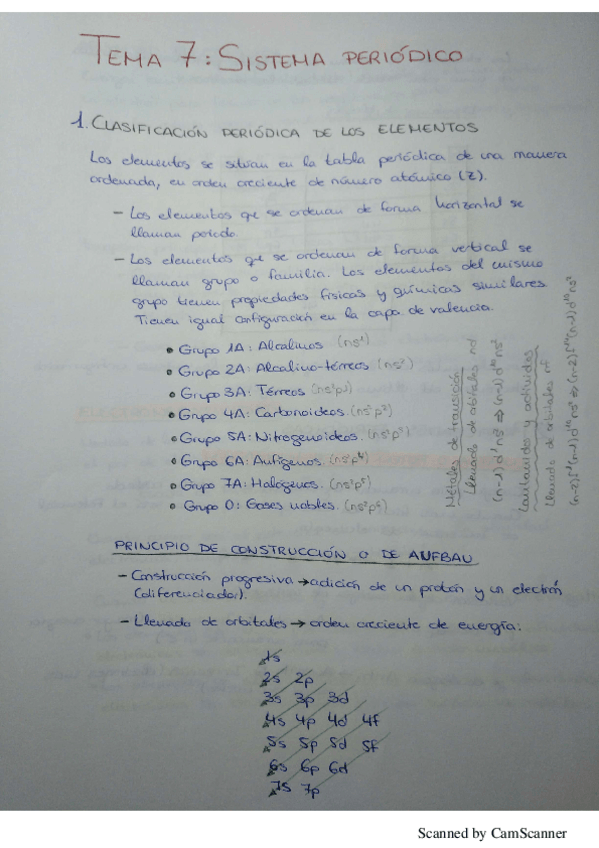 TEMA 7: SISTEMA PERIÓDICO
1. CLASIFICACIÓN PERIÓDICA DE LOS ELEMENTOS
Los elementos se sitúan en la tabla periódica de una manera
ordenada, en orden creciente de número atómico (Z).
- Los elementos que se ordenan de forma horizontal se
llaman periodo.
- Los elementos que se ordenan de forma vertical se
llaman grupo o familia. Los elementos del mismo
grupo tienen propiedades físicas y químicas similares.
Tienen igual configuración en la capa de valencia.
• Grupo 1A: Alcalinos (ns¹)
• Grupo 2A: Alcalino-térreos (ns²)
• Grupo 3A: Térreos (ns²p¹)
• Grupo 4A: Carbonoideos. (ns²p²)
• Grupo 5A: Nitrogenoideos. (ns²p³)
• Grupo 6A: Anfígenos. (ns²p⁴)
• Grupo 7A: Halógenos. (ns²p⁵)
• Grupo 0: Gases nobles. (ns²p⁶)
Metales de transición
Llenado de orbitales nd
(n-1)d¹ns² ⇒ (n-1)d¹⁰ns²
Lantánidos y actínidos
Llenado de orbitales nf
(n-2)f¹(n-1)d¹⁰ns² ⇒ (n-2)f¹⁴(n-1)d¹⁰ns²
PRINCIPIO DE CONSTRUCCIÓN O DE AUFBAU
- Construcción progresiva → adición de un protón y un electrón
(diferenciador).
- Llenado de orbitales → orden creciente de energía:
1s
2s 2p
3s 3p 3d
4s 4p 4d 4f
5s 5p 5d 5f
6s 6p 6d
7s 7p
Scanned by CamScanner